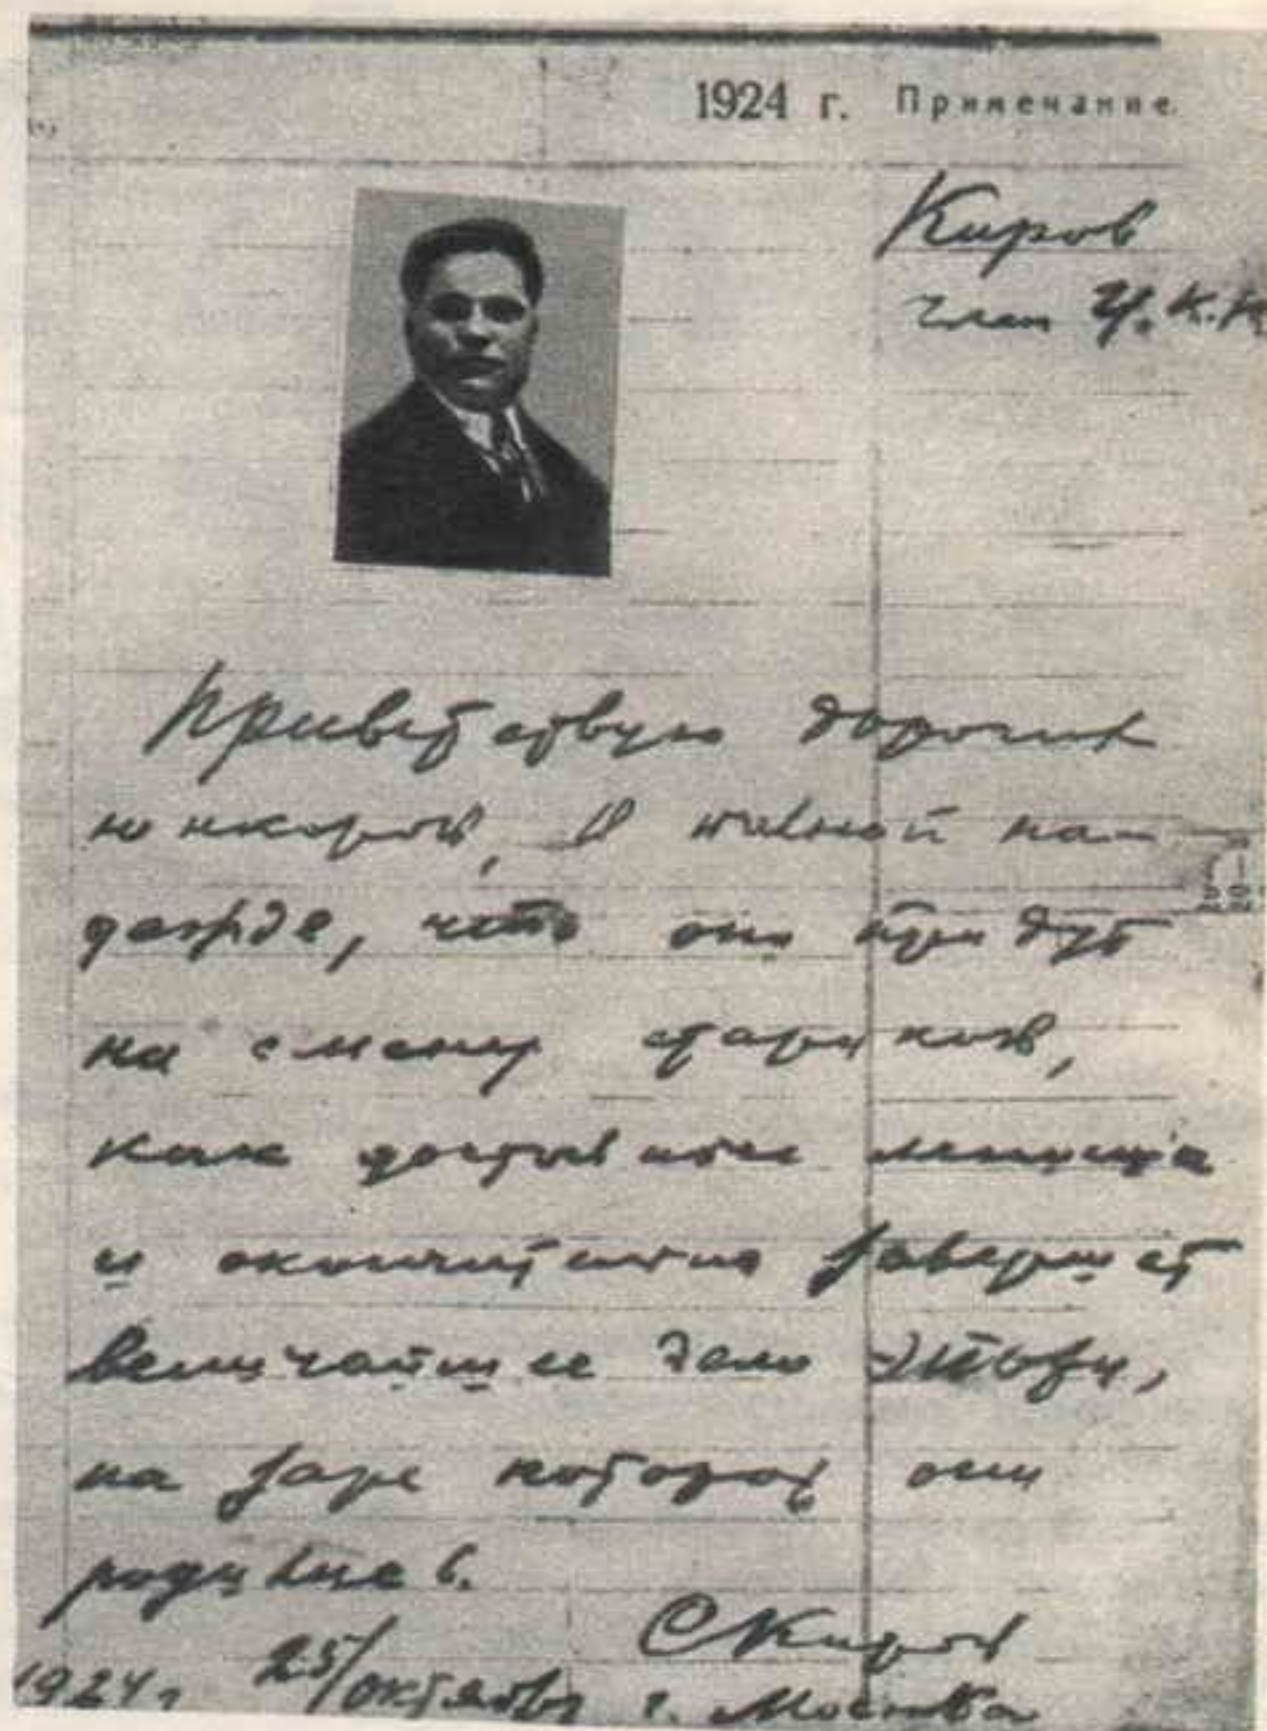 1924 г. Примечание.
Киров
член Ц.К.К
Приветствую дорогих
юнкоров, в полной на-
дежде, что они придут
на смену стариков,
как достойные ленинцы
и окончательно завершат
величайшее дело эпохи,
на заре которой они
родились.
С Киров
1924 г 25/октябр г. Москва